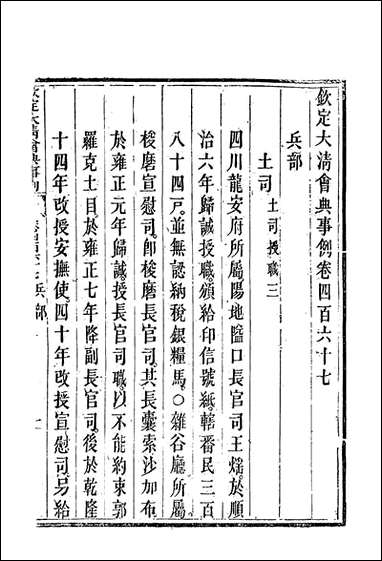 欽定大清會典事例卷四百六十七
兵部
土司 土司授職三
四川龍安府所屬陽地隘口長官司王燴於順
治六年歸誠授職頒給印信號紙轄番民三百
八十四戶並無認納稅銀糧馬○雜谷廳所屬
梭磨宣慰司卽梭磨長官司其長囊索沙加布
於雍正元年歸誠授長官司職以不能約束郭
羅克土目於雍正七年降副長官司後於乾隆
十四年改授安撫使四十年改授宣慰司另給
欽定大清會典事例 兵部